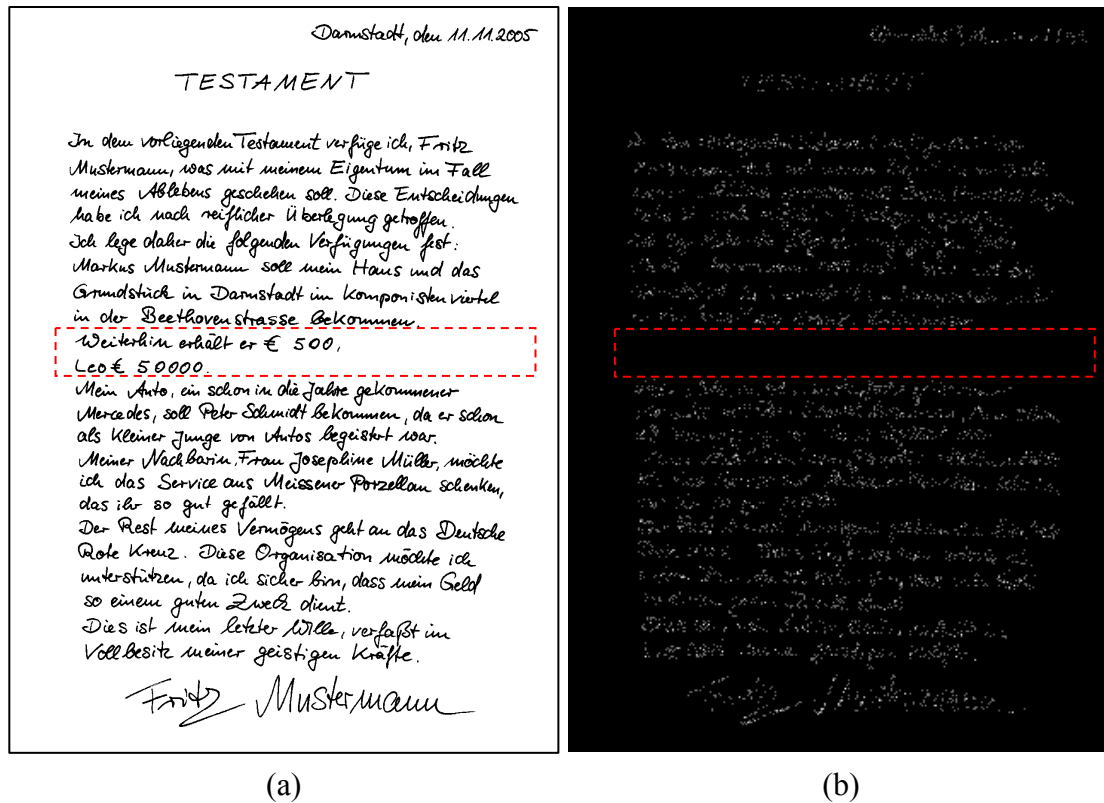 Darmstadt, den 11.11.2005
TESTAMENT
In dem vorliegenden Testament verfüge ich, Fritz
Mustermann, was mit meinem Eigentum im Fall
meines Ablebens geschehen soll. Diese Entscheidungen
habe ich nach reiflicher Überlegung getroffen.
Ich lege daher die folgenden Verfügungen fest:
Markus Mustermann soll mein Haus und das
Grundstück in Darmstadt im Komponistenviertel
in der Beethovenstrasse bekommen.
Weiterhin erhält er € 500,
Leo € 50000.
Mein Auto, ein schon in die Jahre gekommener
Mercedes, soll Peter Schmidt bekommen, da er schon
als kleiner Junge von Autos begeistert war.
Meiner Nachbarin, Frau Josephine Müller, möchte
ich das Service aus Meissener Porzellan schenken,
das ihr so gut gefällt.
Der Rest meines Vermögens geht an das Deutsche
Rote Kreuz. Diese Organisation möchte ich
unterstützen, da ich sicher bin, dass mein Geld
so einem guten Zweck dient.
Dies ist mein letzter Wille, verfaßt im
Vollbesitz meiner geistigen Kräfte.
Fritz Mustermann
(a)
(b)